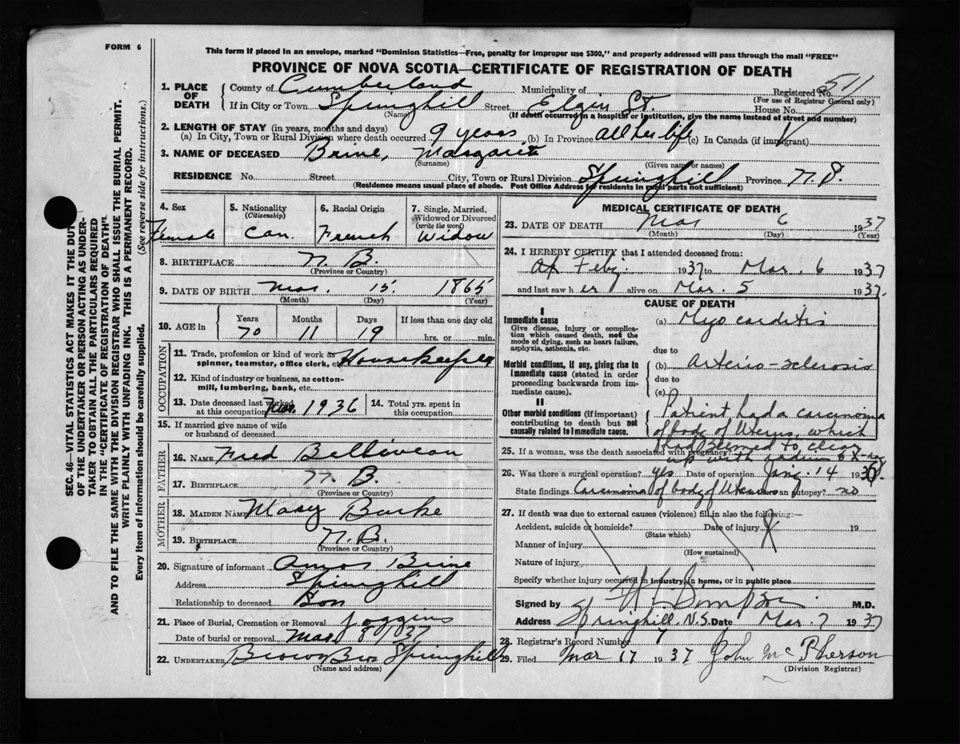 FORM 6
This form if placed in an envelope, marked "Dominion Statistics—Free, penalty for improper use $300," and properly addressed will pass through the mail "FREE"
PROVINCE OF NOVA SCOTIA—CERTIFICATE OF REGISTRATION OF DEATH
SEC. 46—VITAL STATISTICS ACT MAKES IT THE DUTY
OF THE UNDERTAKER OR PERSON ACTING AS UNDER-
TAKER TO OBTAIN ALL THE PARTICULARS REQUIRED
IN THE "CERTIFICATE OF REGISTRATION OF DEATH"
AND TO FILE THE SAME WITH THE DIVISION REGISTRAR WHO SHALL ISSUE THE BURIAL PERMIT.
WRITE PLAINLY WITH UNFADING INK. THIS IS A PERMANENT RECORD.
Every item of information should be carefully supplied. (See reverse side for instructions.)
1. PLACE OF DEATH County of Cumberland Municipality of Registered No. 511
(For use of Registrar General only)
If in City or Town Springhill Street Elgin St. House No.
(Name) (If death occurred in a hospital or institution, give the name instead of street and number)
2. LENGTH OF STAY (in years, months and days)
(a) In City, Town or Rural Division where death occurred 9 years (b) In Province all her life (c) In Canada (if immigrant)
3. NAME OF DECEASED Brine, Margaret
(Surname) (Given name or names)
RESIDENCE No. Street City, Town or Rural Division Springhill Province N.S.
(Residence means usual place of abode. Post Office Address for residents in rural parts not sufficient)
4. Sex 5. Nationality (Citizenship) 6. Racial Origin 7. Single, Married, Widowed or Divorced (write the word)
Female Can. French Widow
8. BIRTHPLACE N.B.
(Province or Country)
9. DATE OF BIRTH Mar. 15 1865
(Month) (Day) (Year)
10. AGE in Years Months Days If less than one day old
70 11 19 hrs. or min.
OCCUPATION
11. Trade, profession or kind of work as spinner, teamster, office clerk, etc. Housekeeper
12. Kind of industry or business, as cotton-mill, lumbering, bank, etc.
13. Date deceased last worked at this occupation 1936 14. Total yrs. spent in this occupation.
15. If married give name of wife or husband of deceased
FATHER
16. NAME Fred Belliveau
17. BIRTHPLACE N.B.
(Province or Country)
MOTHER
18. MAIDEN NAME Mary Burke
19. BIRTHPLACE N.B.
(Province or Country)
20. Signature of informant Amos Brine
Address Springhill
Relationship to deceased Son
21. Place of Burial, Cremation or Removal Joggins
Date of burial or removal Mar 8/37
22. UNDERTAKER Brown Bros Springhill
(Name and address)
MEDICAL CERTIFICATE OF DEATH
23. DATE OF DEATH Mar 6 1937
(Month) (Day) (Year)
24. I HEREBY CERTIFY that I attended deceased from:
Feby. 1937 to Mar. 6 1937
and last saw h er alive on Mar. 5 1937.
CAUSE OF DEATH
I
Immediate cause
Give disease, injury or complication which caused death, not the mode of dying, such as heart failure, asphyxia, asthenia, etc.
(a) Myocarditis
due to
Morbid conditions, if any, giving rise to immediate cause (stated in order proceeding backwards from immediate cause).
(b) Arterio-sclerosis
due to
(c)
II
Other morbid conditions (if important) contributing to death but not causally related to immediate cause.
Patient had a carcinoma
of body of Uterus, which
had seemed to clear
up with radium & X-ray
25. If a woman, was the death associated with pregnancy?
26. Was there a surgical operation? yes Date of operation 14 1936
State findings Carcinoma of body of Uterus Was there an autopsy? no
27. If death was due to external causes (violence) fill in also the following:—
Accident, suicide or homicide? Date of injury 19
(State which)
Manner of injury
(How sustained)
Nature of injury
Specify whether injury occurred in industry, in home, or in public place
Signed by M.D.
Address Springhill, N.S. Date Mar. 7 1937
28. Registrar's Record Number 7
29. Filed Mar 17 1937 John McPherson
(Division Registrar)